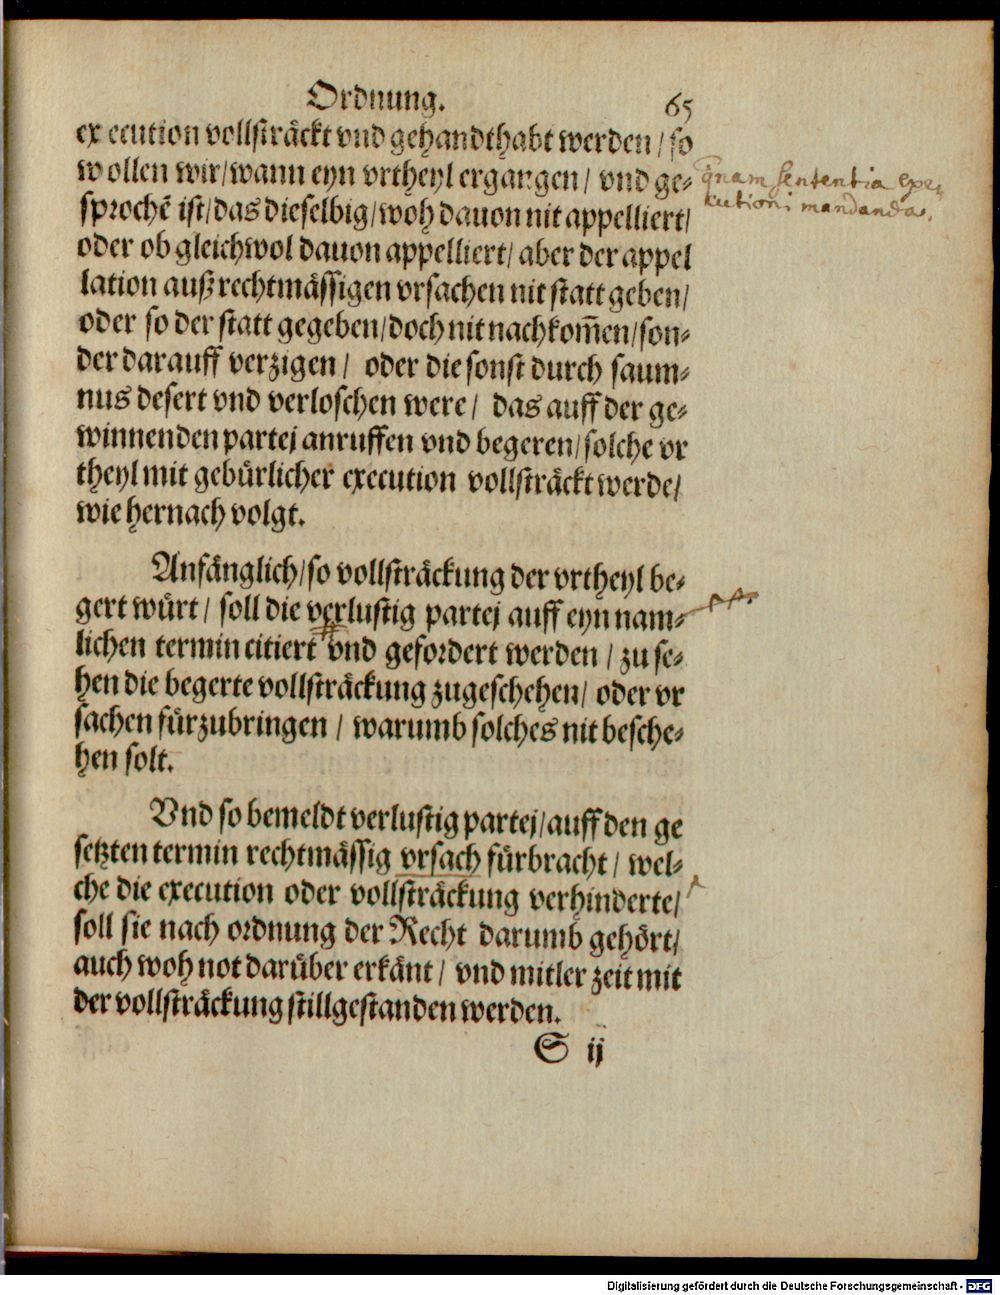 Ordnung. 65
ex ecution vollsträckt vnd gehandthabt werden / so
wollen wir / wann eyn vrtheyl ergangen / vnd ge⸗
sprochē ist / das dieselbig / woh dauon nit appelliert /
oder ob gleichwol dauon appelliert / aber der appel
lation auß rechtmässigen vrsachen nit statt geben /
oder so der statt gegeben / doch nit nachkom̄en / son⸗
der darauff verzigen / oder die sonst durch saum⸗
nus desert vnd verloschen were / das auff der ge⸗
winnenden partej anruffen vnd begeren / solche vr
theyl mit gebürlicher execution vollsträckt werde /
wie hernach volgt.
quam sententia exe⸗
kutioni mandanda.
Anfänglich / so vollsträckung der vrtheyl be⸗
gert würt / soll die verlustig partej auff eyn nam⸗
lichen termin citiert vnd gefordert werden / zu se⸗
hen die begerte vollsträckung zugeschehen / oder vr
sachen fürzubringen / warumb solches nit besche⸗
hen solt.
Vnd so bemeldt verlustig partej / auff den ge
setzten termin rechtmässig vrsach fürbracht / wel⸗
che die execution oder vollsträckung verhinderte /
soll sie nach ordnung der Recht darumb gehört /
auch woh not darüber erkänt / vnd mitler zeit mit
der vollsträckung stillgestanden werden.
S ij
Digitalisierung gefördert durch die Deutsche Forschungsgemeinschaft - DFG